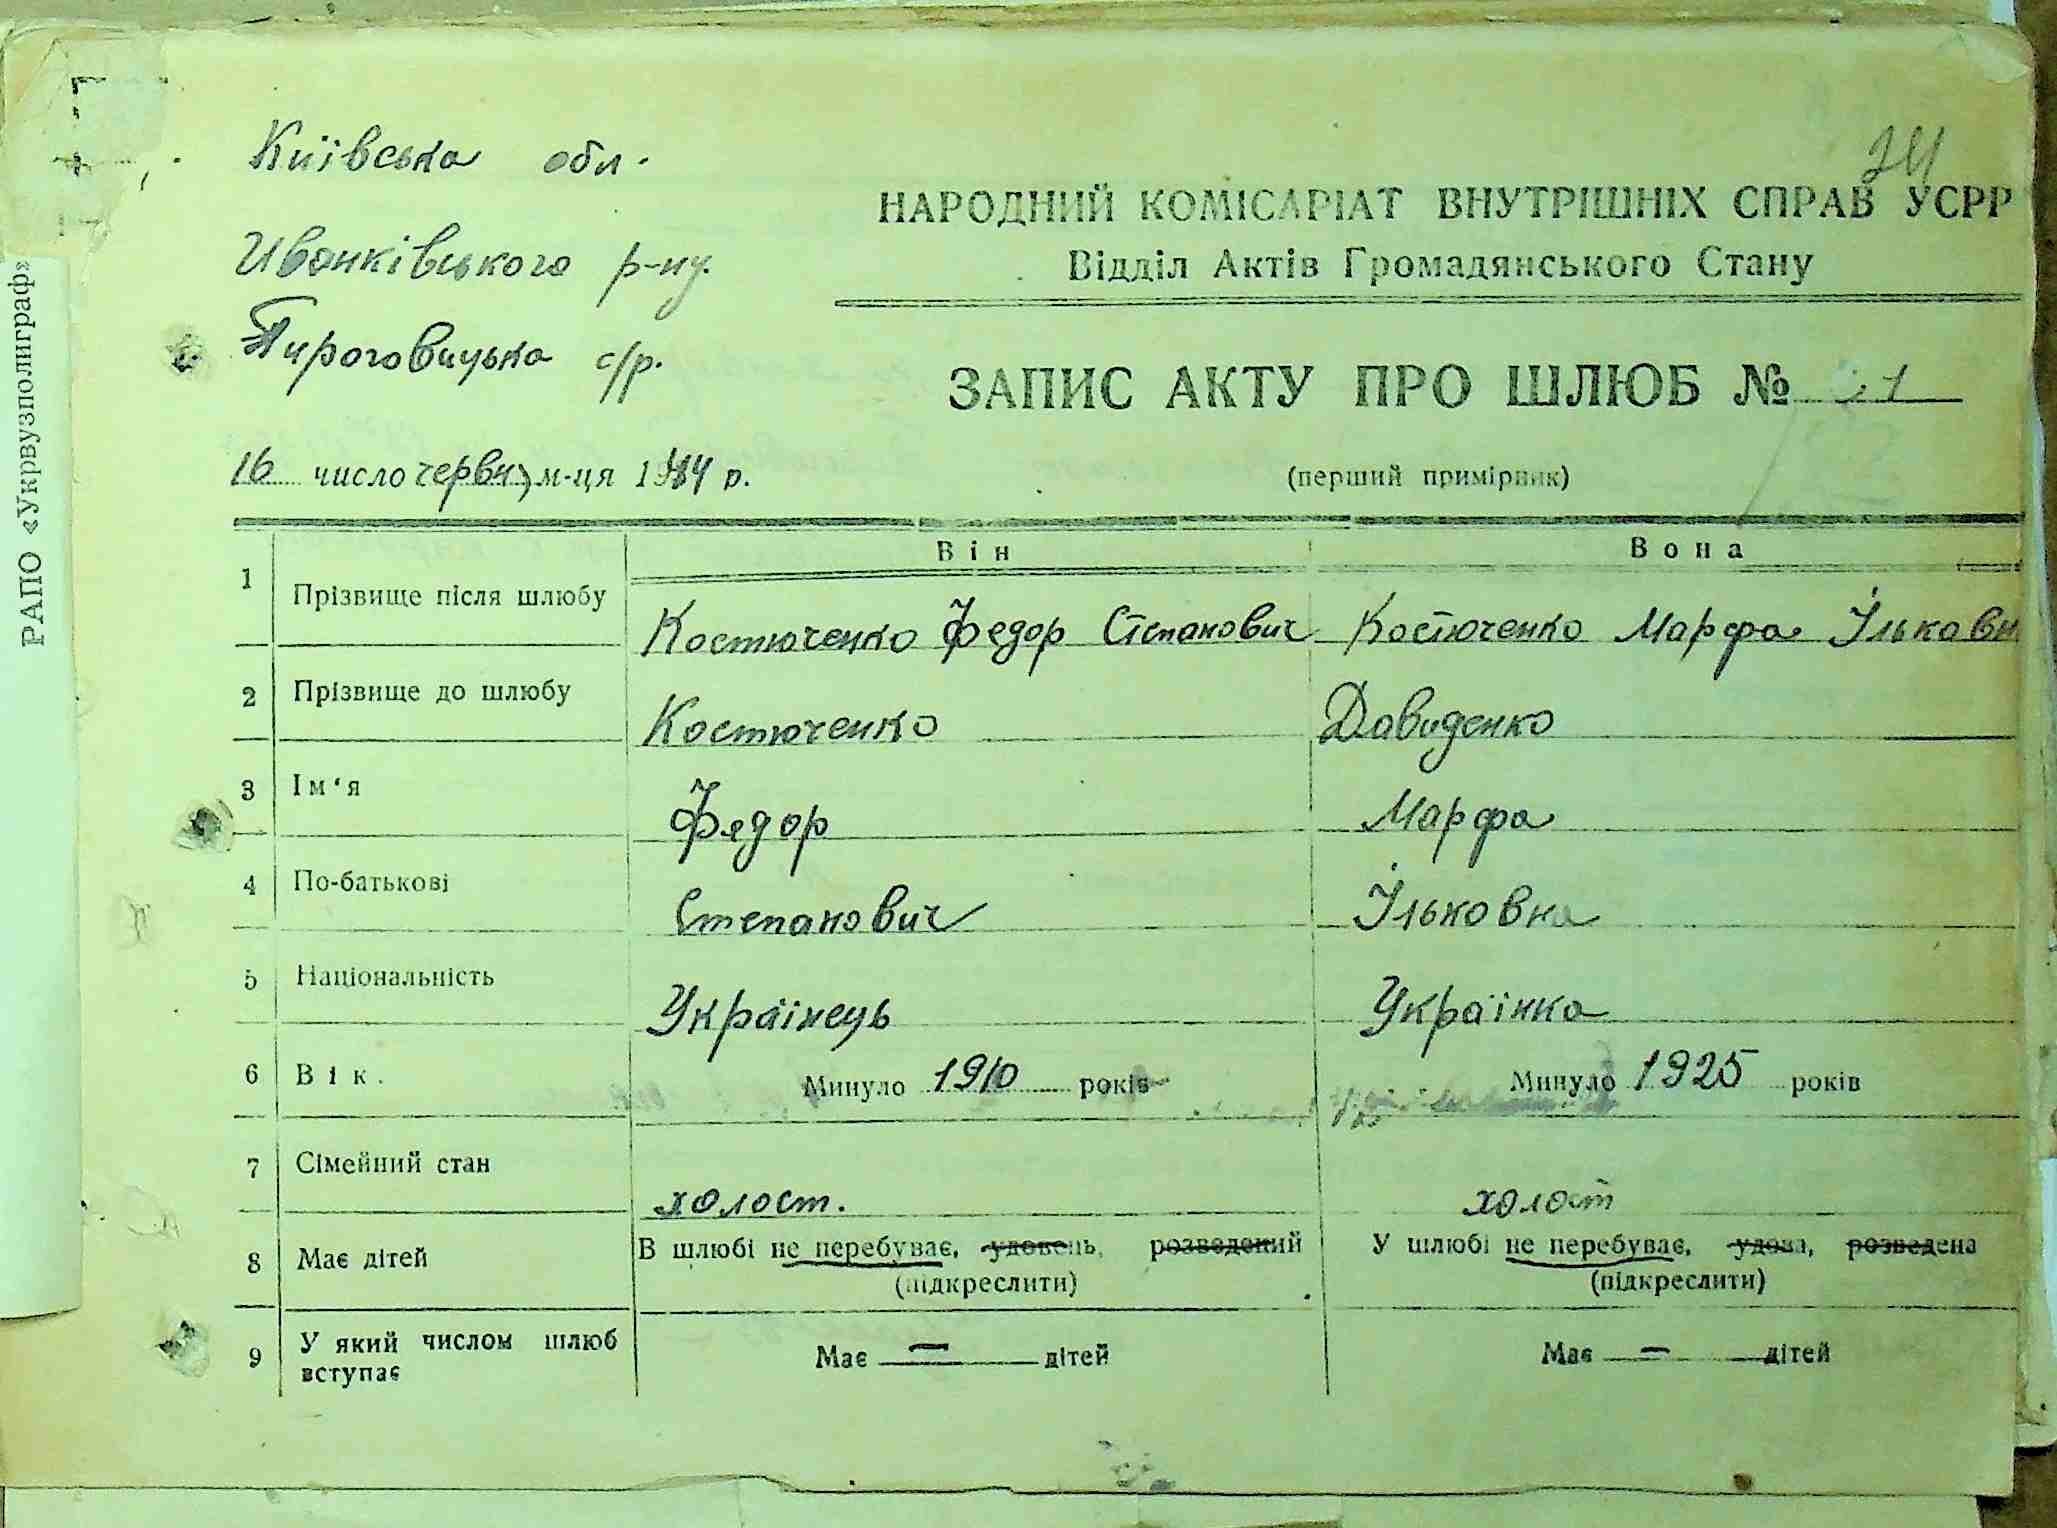 Київська обл.
24
НАРОДНИЙ КОМІСАРІАТ ВНУТРІШНІХ СПРАВ УСРР
Иванківського р-ну.
Відділ Актів Громадянського Стану
Пироговицька с/р.
ЗАПИС АКТУ ПРО ШЛЮБ №
16 число червня м-ця 1944 р.
(перший примірник)
РАПО «Укрвузполиграф»
Він Вона
1 Прізвище після шлюбу Костюченко Федор Степанович Костюченко Марфа Ільковн
2 Прізвище до шлюбу Костюченко Давиденко
3 Ім'я Федор Марфа
4 По-батькові Степанович Ільковна
5 Національність Українець Українка
6 Вік. Минуло 1910 років Минуло 1925 років
7 Сімейний стан холост. холост
8 Має дітей В шлюбі не перебуває, удовець, розведений У шлюбі не перебуває, удова, розведена
(підкреслити) (підкреслити)
9 У який числом шлюб вступає Має — дітей Має — дітей